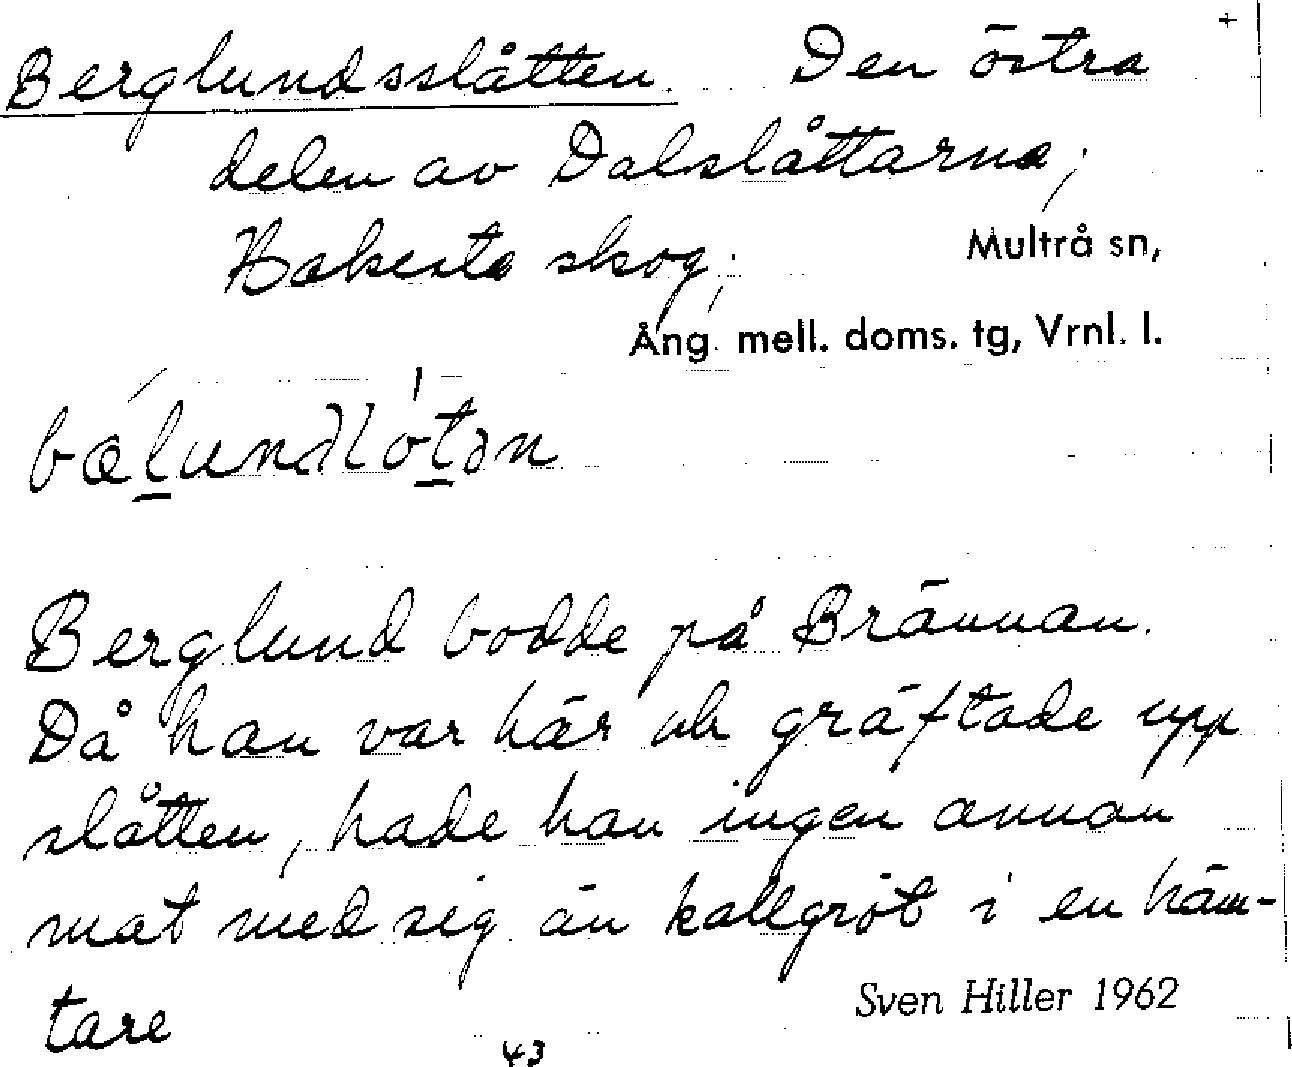 Berglundsslåtten. Den östra
delen av Dalslåttarna;
skog;
Multrå sn,
Ång. mell. doms. tg, Vrnl. l.
Berglund bodde på Brännan.
Då han var här och gräftade upp
slåtten, hade han ingen annan
mat med sig än kallgröt i en häm-
tare
Sven Hiller 1962
43